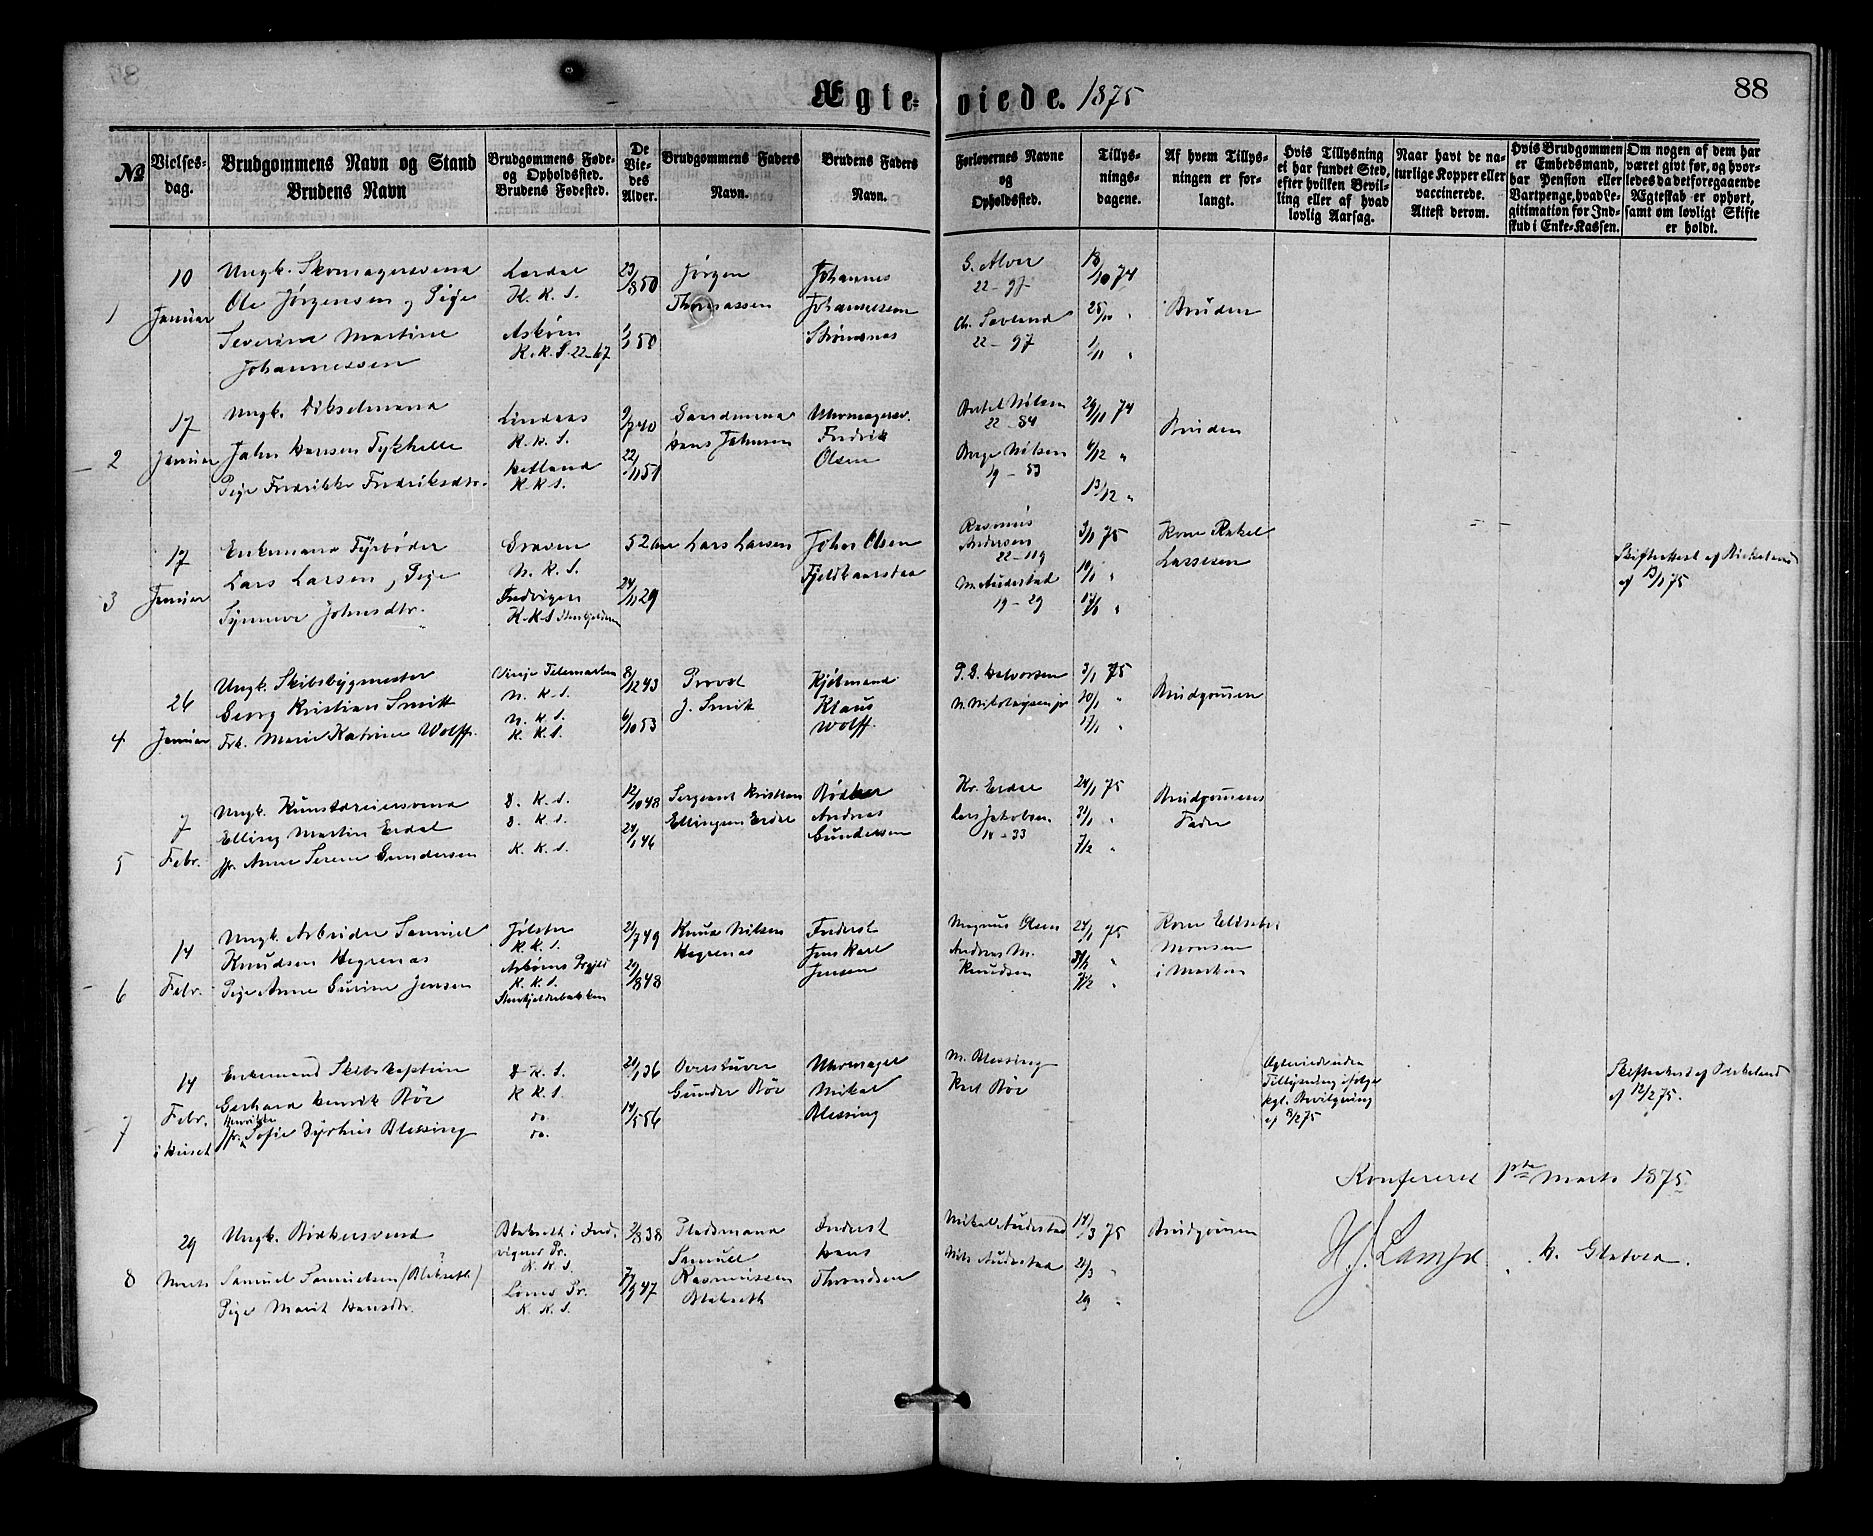 Ægteviede. 1875
88
№
Vielsesdag.
Brudgommens Navn og Stand
Brudens Navn
Brudgommens Føde-
og Opholdssted.
Brudens Fødested.
De
Vie-
des
Alder.
Brudgommens Faders
Navn.
Brudens Faders
Navn.
Forlovernes Navne
og
Opholdssted.
Tillys-
nings-
dagene.
Af hvem Tillys-
ningen er for-
langt.
Hvis Tillysning
ei har fundet Sted,
efter hvilken Bevil-
ling eller af hvad
lovlig Aarsag.
Naar havt de na-
turlige Kopper eller
vaccinerede.
Attest derom.
Hvis Brudgommen
er Embedsmand,
har Pension eller
Vartpenge, hvad Le-
gitimation for Ind-
skud i Enke-Kassen.
Om nogen af dem har
været givt før, og hvor-
ledes da det foregaaende
Ægteskab er ophørt,
samt om lovligt Skifte
er holdt.
1
10
Januar
Ungk. Skomagersvend
Ole Jørgensen, Pige
Severine Martine
Johannessen
K. K. S.
Askøen
K. K. S. 22-67
23/8 50
1/1 50
Jørgen
Thomassen
Johannes
Johannessen
G. Alver
22-97
22-97
18/10 74
25/10 "
1/11 "
Bruden
2
17
Januar
Ungk.
John Hansen Tykhelle
Pige Fredrikke Fredriksdtr.
Lindaas
K. K. S.
Hetland
K. K. S.
9/7 40
22/11 51
Gaardmand
Hans Johnsen
Uhrmagersv.
Fredrik
Olsen
Bertel Nilsen
22-84
Berge Nilsen
19-53
29/11 74
6/12 "
13/12 "
Bruden
3
17
Januar
Enkemand Fyrbøder
Lars Larsen, Pige
Synneve Johnsdtr.
Graven
N. K. S.
52 Aar
24/11 29
Lars Larsen
John Olsen
Rasmus
Andersen
22-119
M. Audestad
19-29
3/1 75
10/1 "
17/1 "
Kone Rakel
Larssen
Skifteattest af Birkeland
af 13/1 75
4
26
Januar
Ungk. Skibsbygmester
Georg Kristian Smitt
Frk. Marie Katrine Wolff.
Vinje Telemarken
N. K. S.
N. K. S.
K. K. S.
8/12 43
6/10 53
Provst
J. Smitt
Kjøbmand
Klaus
Wolff.
P. G. Halvorsen
N. Nikolaysen jr
3/1 75
10/1 "
17/1 "
Brudgommen
5
7
Febr.
Ungk. Kunstdreiersvend
Elling Martin Erdal
Jfr. Anne Serene Gundersen
D. K. S.
D. K. S.
K. K. S.
12/10 48
24/1 46
Sergeant Kristian
Ellingsen Erdal
Bødker
Andreas
Gundersen
Kr. Erdal
Lars Jakobsen
18-33
24/1 75
31/1 "
7/2 "
Brudgommens
Fader
6
14
Febr.
Ungk. Arbeider Samuel
Knudsen Hegrenas
Pige Anne Gurine Jensen
Jølster
K. K. S.
K. K. S.
21/7 49
29/8 48
Knud Nilsen
Hegrenas
Inderst
Jens Karl
Jensen
Magnus Olsen
Andreas M.
Knudsen
24/1 75
31/1 "
7/2 "
Kone Elisabet
Monsen
i Marken
7
14
Febr.
i Huset
Enkemand Skibskaptein
Gerhard Henrik Bøe
Henrikke
Jfr. Sofie Dyrhus Blessing
D. K. S.
K. K. S.
do.
do.
21/1 36
14/5 56
Gunder Bøe
Uhrmager
Mikal
Blessing
M. Blessing
Karl Bøe
Ægteviede uden
Tillysning ifølge
kgl. Bevilgning
af 8/2 75
Skifteattest af Birkeland
af 12/2 75.
Konfereret 1ste Marts 1875.
H. J. Lampe
8
29
Marts
Ungk. Bødkersvend
Samuel Samuelsen (Blikseth?)
Pige Marit Hansdtr.
Blakseth i Ind-
vigens Pr.
K. K. S.
Loms Pr.
K. K. S.
2/8 38
7/9 47
Pladsmand
Samuel
Rasmussen
Blakseth
Inderst
Hans
Throndsen
Mikal Audestad
Nils Audestad
14/3 75
21/3 "
29 "
Brudgommen